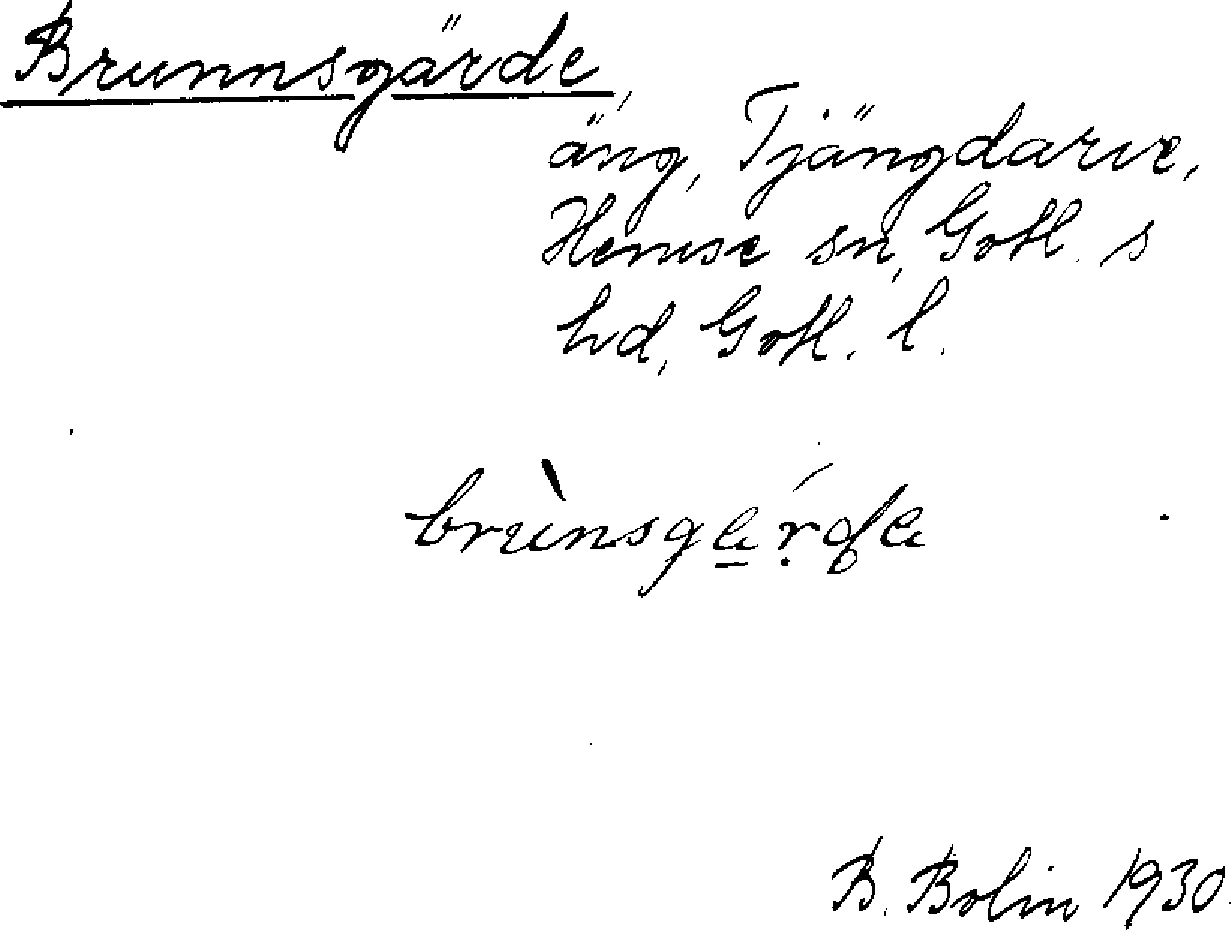 Brunnsgärde,
äng, Tjängdarve,
Hemse sn, Gotl. s
hd, Gotl. l.
B. Bolin 1930.